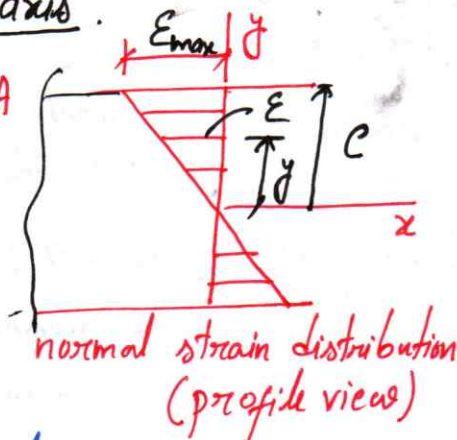 axis.
Emax y
A
ε
y
C
x
normal strain distribution
(profile view)